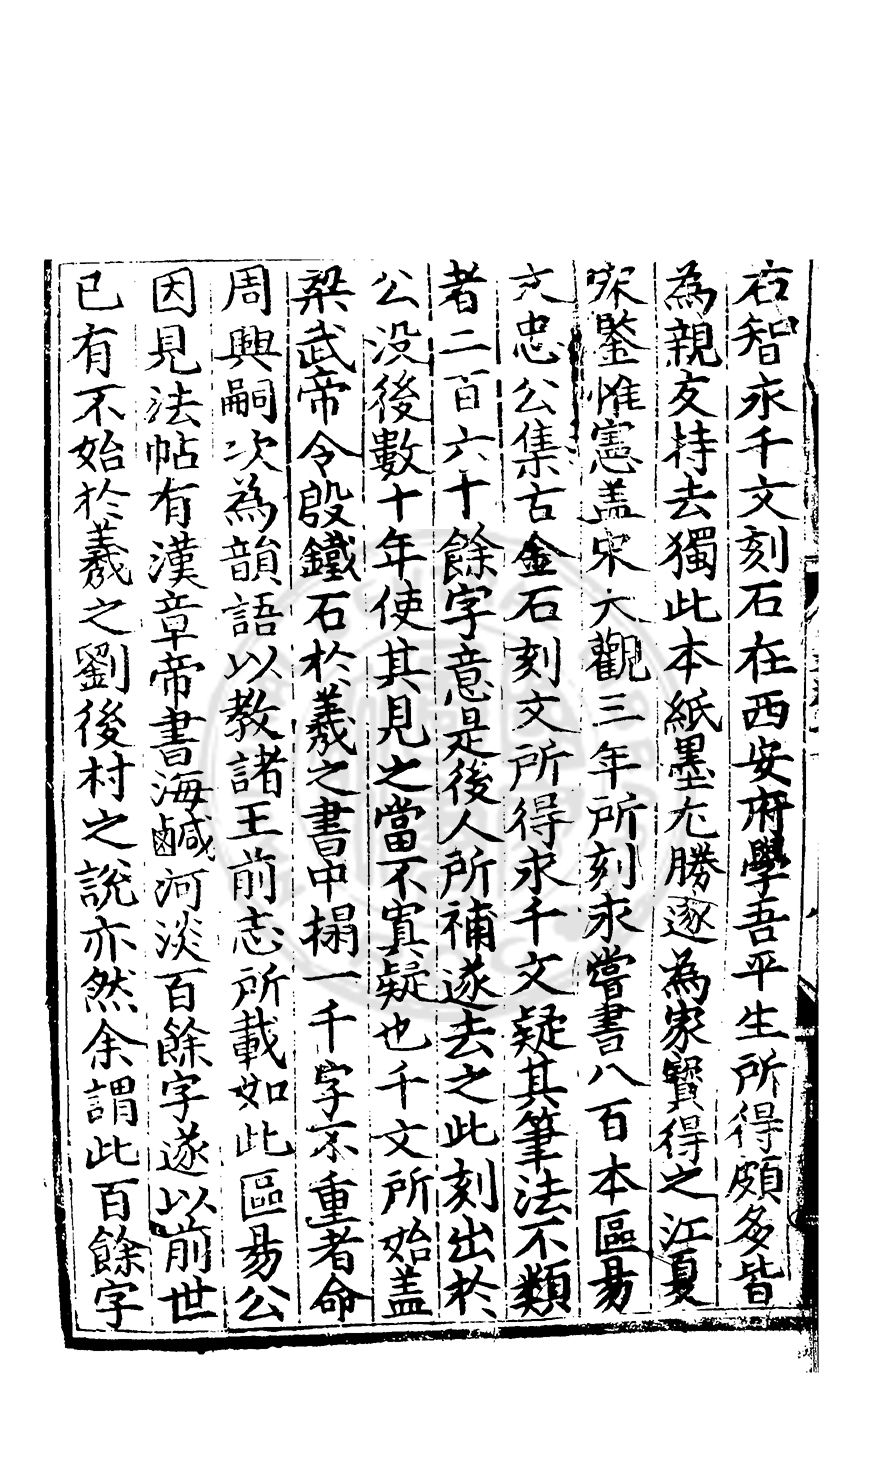 右智永千文刻石在西安府學吾平生所得頗多皆
為親友持去獨此本紙墨尤勝遂為家寶得之江夏
宋鑒惟憲盖宋大觀三年所刻永嘗書八百本區昜
文忠公集古金石刻文所得永千文疑其筆法不類
者二百六十餘字意是後人所補遂去之此刻出於
公没後數十年使其見之當不寘疑也千文所始盖
梁武帝令殷鐵石於羲之書中搨一千字不重者命
周興嗣次為韻語以教諸王前志所載如此區昜公
因見法帖有漢章帝書海鹹河淡百餘字遂以前世
已有不始於羲之劉後村之說亦然余謂此百餘字